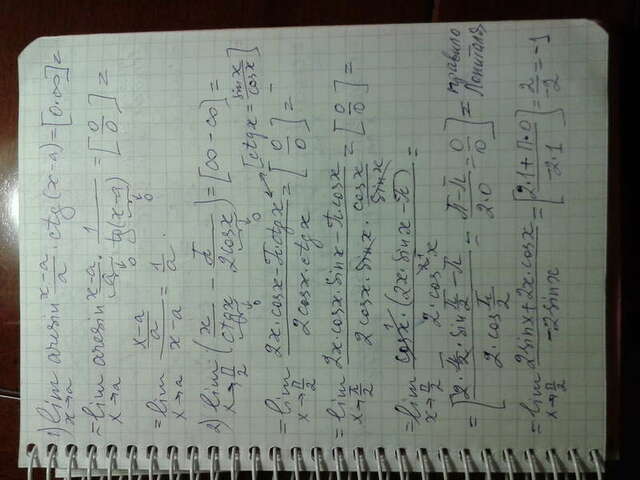 1) lim x→a arcsin (x-a)/a · ctg(x-a) = [0·∞] =
= lim x→a arcsin (x-a)/a · 1/tg(x-a) = [0/0] =
= lim x→a ((x-a)/a)/(x-a) = 1/a.
2) lim x→π/2 (x/ctgx - π/2cosx) = [∞-∞] =
= lim x→π/2 (2x·cosx - π·ctgx)/(2cosx·ctgx) = [0/0] = [ctgx = sinx/cosx]
= lim x→π/2 (2x·cosx·sinx - π·cosx)/(2cosx·sinx · cosx/sinx) = [0/0] =
= lim x→π/2 cosx·(2x·sinx - π)/(2·cos²x) =
= [(2·π/2·sin π/2 - π)/(2·cos π/2) = (π-π)/(2·0) = 0/0] = правило Лопиталя
= lim x→π/2 (2sinx + 2x·cosx)/(-2sinx) = [(2·1+π·0)/(-2·1)] = 2/-2 = -1